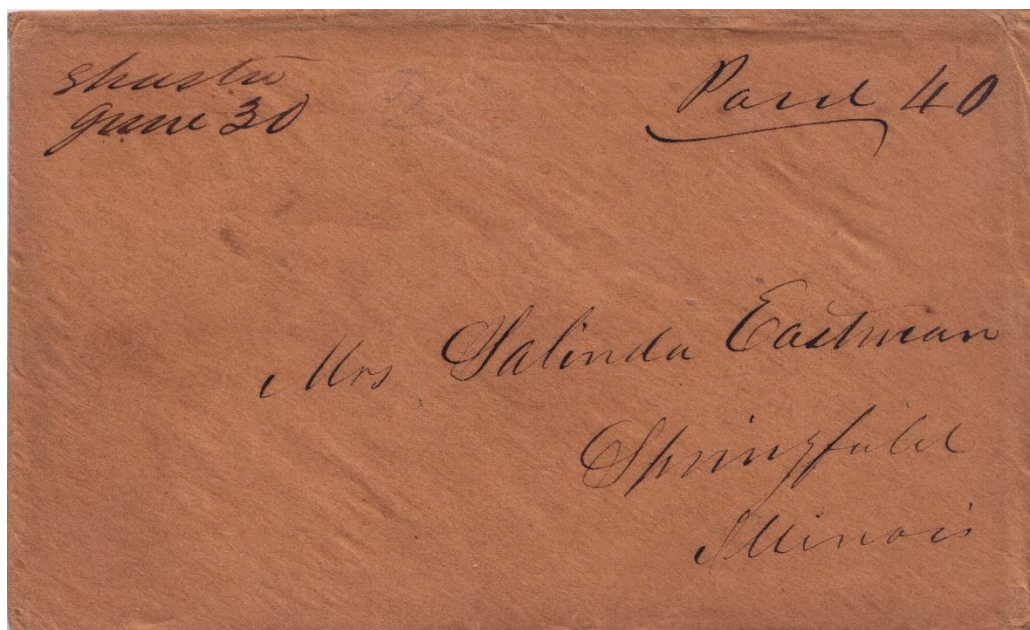 Shasta
June 30
Paid 40
Mrs Salinda Eastman
Springfield
Illinois